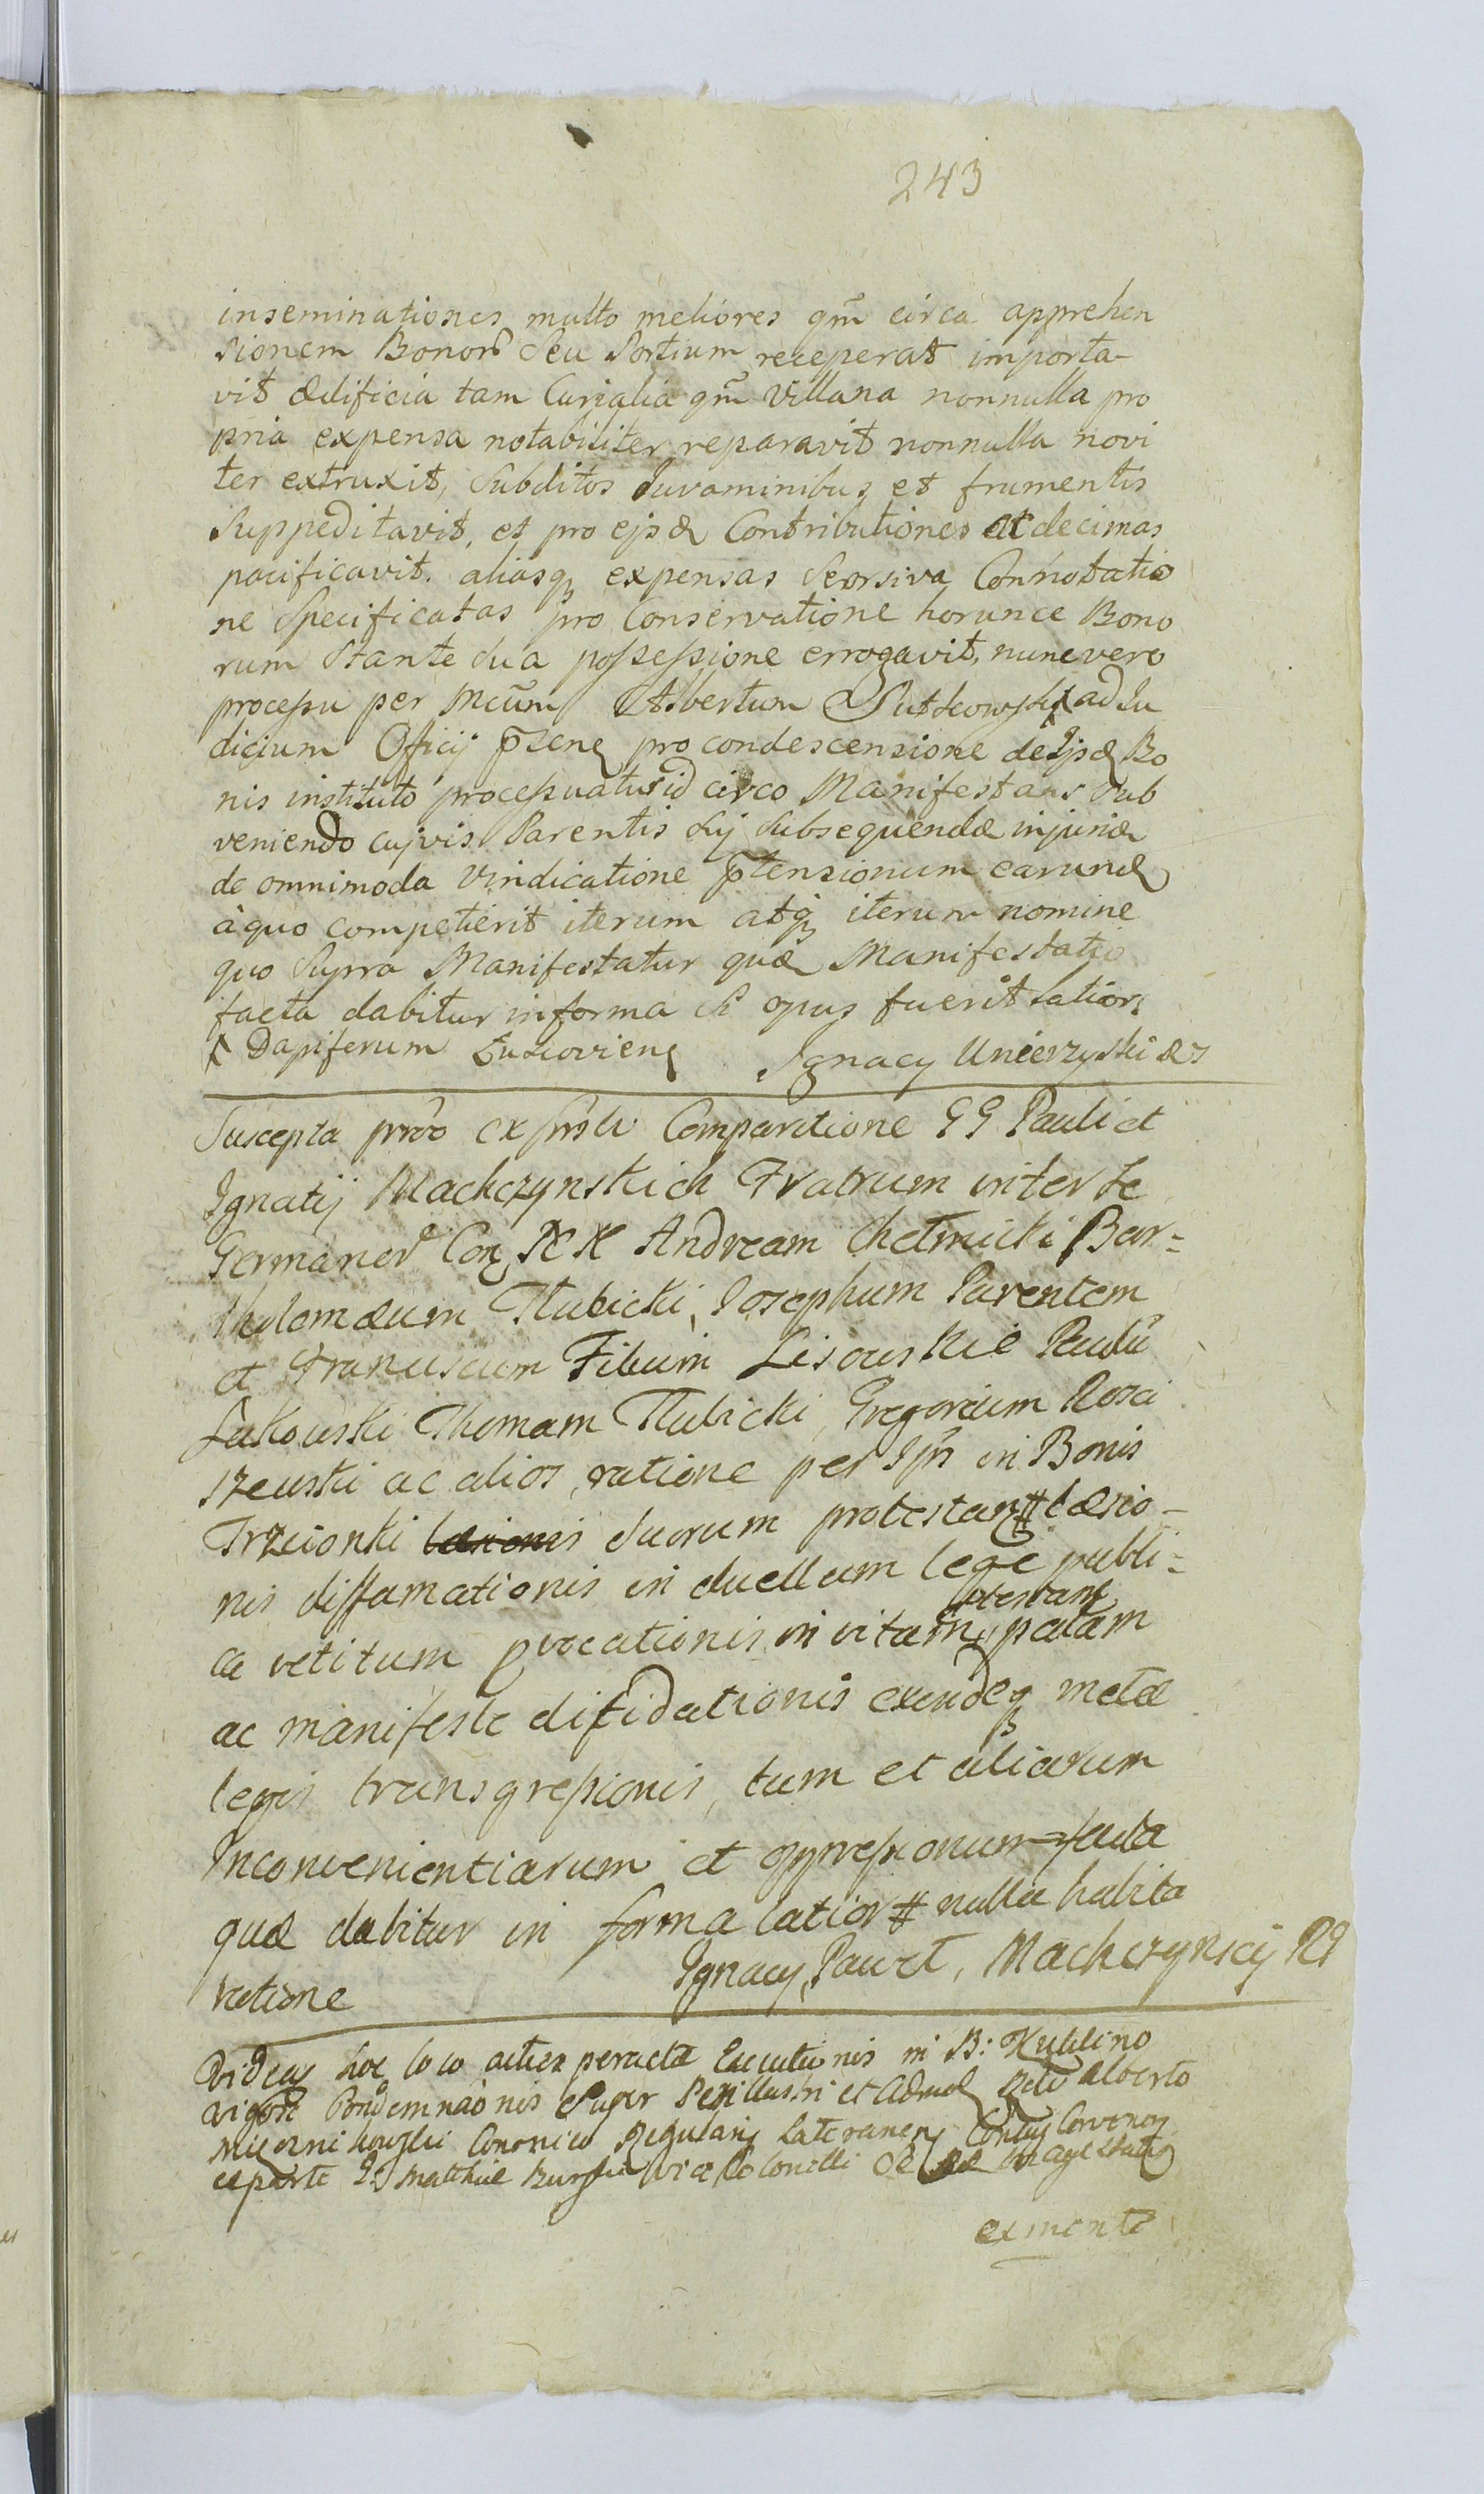 243
inseminationes multo meliores qm̃ circa apprehen
sionem Bonor̃ Seu Sortium receperat importa-
vit ædificia tam Curialia qm̃ Villana nonnulla pro
pria expensa notabiliter reparavit nonnulla novi
ter extruxit, Subditos Juvaminibus et frumentis
Suppeditavit, et pro ejsd Contributiones et decimas
pacificavit. aliasq expensas Seorsiva Connotatio
ne Specificatas pro Conservatione horunce Bono
rum Stante sua possessione errogavit, nunc vero
processu per Mcum Albertum Sutkowski ad Ju
dicium Officij p̃sens pro condescensione de Ijsd Bo
nis instituto processuatur id circo Manifestans Sub
veniendo cujvis Parentis Sŭj Subsequendæ injuriæ
de omnimoda Vindicatione p̃tensionum earund
à quo competierit iterum atq iterum nomine
quo Supra Manifestatur quæ Manifestatio
facta dabitur in forma Si opus fuerit latiori
Dapiferum Ignacy Unierzyski
Suscepta Comparitione GG Pauli et
Ignatij Machczynskich Fratrum inter Se
Germanor̃ Con Andream Chełmicki Bar=
tholomæum Tłubicki, Josephum Parentem
et Franciscum Filium Lisowskie Paulũ
Łukowski Thomam Tłubicki, Gregorium Rosci
szewski ac alios, ratione per Ipsos in Bonis
Trzcionki læsionis suorum protestan # læsio-
nis diffamationis in duellum lege publi=
ca vetitum pvocationis in vitam protestant palam
ac manifeste difidationis exindeq metæ
legis transgressionis, tum et aliarum
Inconvenientiarum et oppressionum facta
quæ dabitur in forma latiori # nulla habita
ratione Ignacy, Paweł, Machczynscy
Videas hoc loco peractæ Executionis in B: Kuklino
vigore Condemnaõnis Super Perillustri et Admod Rndo Alberto
Canonico Regulari Lateranens
ex parte G: Matthiæ Vice Colonelli
ex mente